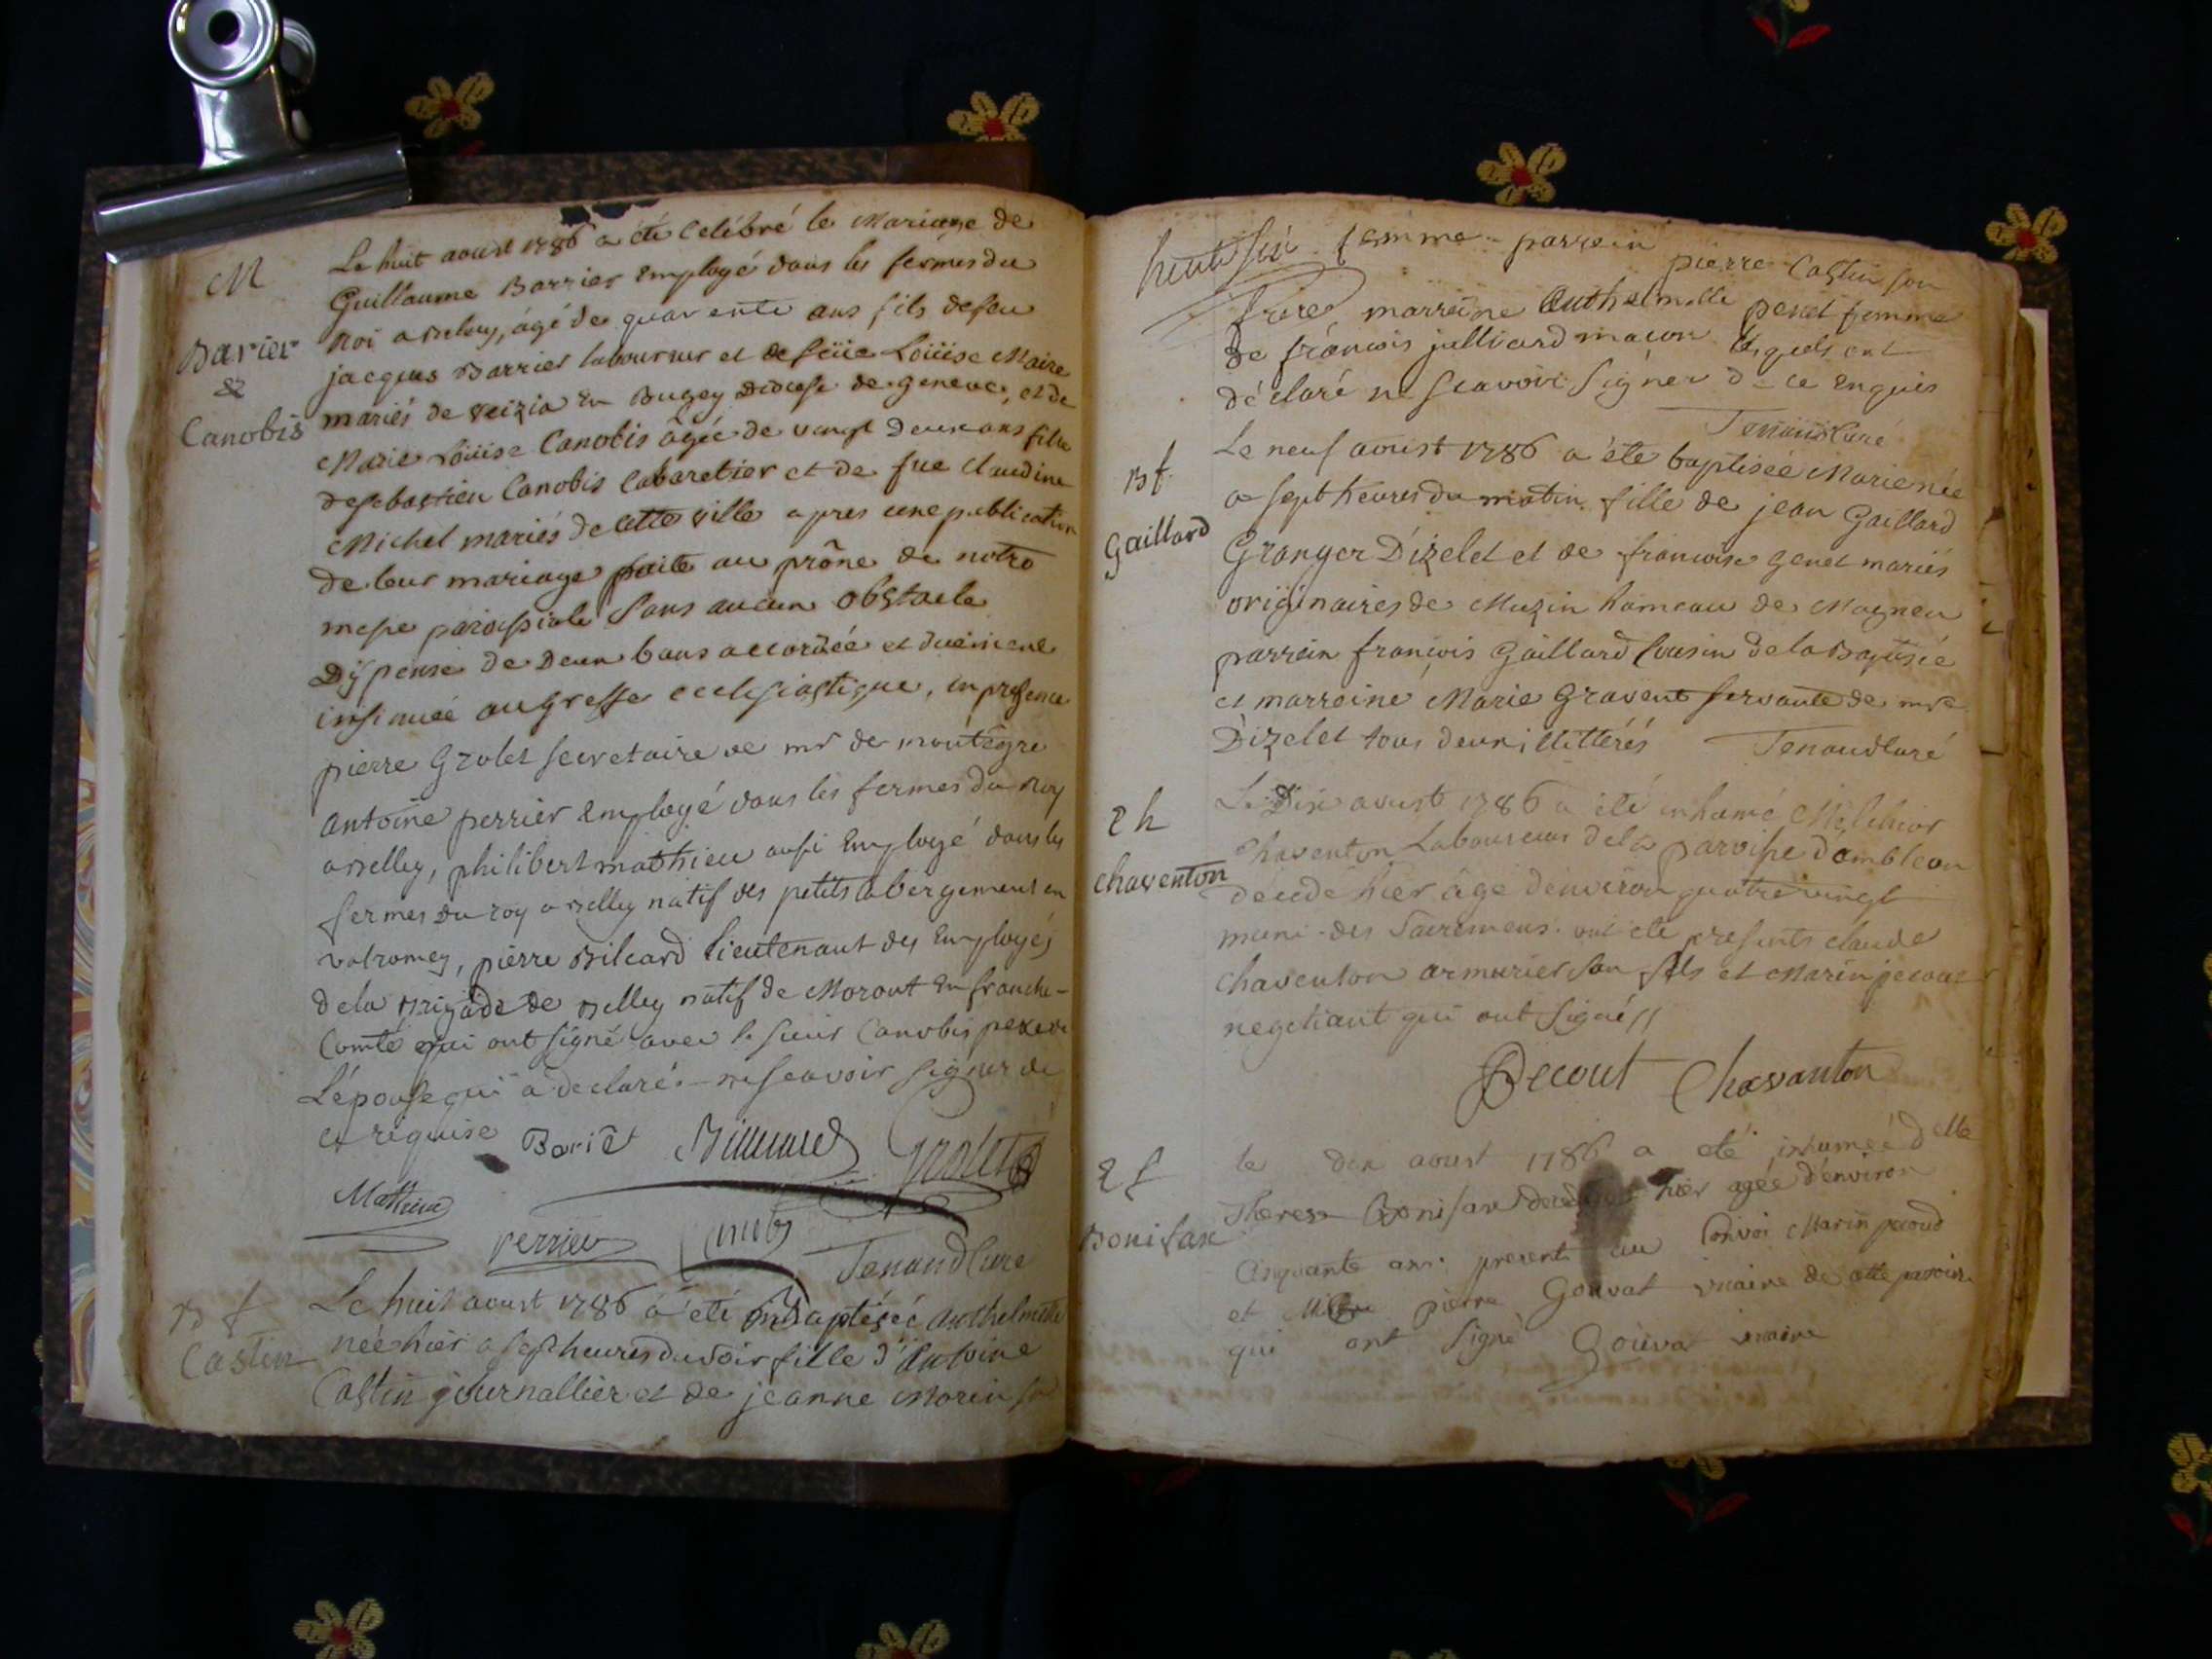 M
Barier
&
Canobis
Le huit aoust 1786 a été Celébré le Mariage de
Guillaume Barrier Employé dans les fermes du
Roi a Belley, âgé de quarente ans fils de feu
jacques Barrier laboureur et de feüe Loüise Maire
mariés de Veizia En Bugey Diocese de geneve, et de
Marie Loüise Canobis âgée de vingt Deux ans fille
de sebastien Canobis Cabaretier et de fue Claudine
Michel mariés de Cette ville apres une publication
de leur mariage faite au prône de notre
messe paroissiale Sans aucun obstacle
Dispense de Deux bans accordée et düement
insinuée au greffe ecclesiastique, en presence
pierre Grolet secretaire de mr de montegre
antoine perrier Employé dans les fermes du Roy
a Belley, philibert mathieu aussi Employé dans les
fermes du roy a Belley natif des petits abergement en
valromey, pierre Bileard lieutenant des Employés
de la Brigade de Belley natif de Morout En franche-
Comté qui ont signé avec le sieur Canobis pere de
L'épouse qui a declaré ne scavoir signer de
ce requise Bariet Grolet
Mathieu
perrier Tenand Curé
B f
Castin
Le huit aoust 1786 a été Baptisée Anthelmette
née hier a sept heures du soir fille d'Antoine
Castin journallier et de jeanne Morin sa
huit six femme - parrein pierre Castin son
frere marreine Anthelmette penet femme
de francois julliard macon lesquels ont
déclaré ne scavoir signer de ce Enquis
Tenand Curé
B f.
Gaillard
Le neuf aoust 1786 a été baptisée Marie née
a sept heures du matin fille de jean Gaillard
Granger D'izelet et de francoise genet mariés
originaires de Muzin hameau de Magneu
parrein francois Gaillard Cousin de la Baptisée
et marreine Marie Gravent servante de mre
D'izelet tous deux illittérés Tenand Curé
2 h
Chaventon
Le Dix aoust 1786 a été inhumé Melchior
Chaventon Laboureur de la paroisse d'ambleon
décédé hier âgé d'environ quatre vingt
muni des Sacremens. ont été presents claude
Chaventon armurier son fils et Marin pecout
negotiant qui ont signé //
Pecout Chavanton
2 f
Bonifax
le dix aoust 1786 a eté inhumée delle
Therese Bonifax decedée hier agée d'environ
Cinquante ans. present au Convoi Marin pecoud
et pierre Gouvat vicaire de cette paroisse
qui ont signé Gouvat vicaire